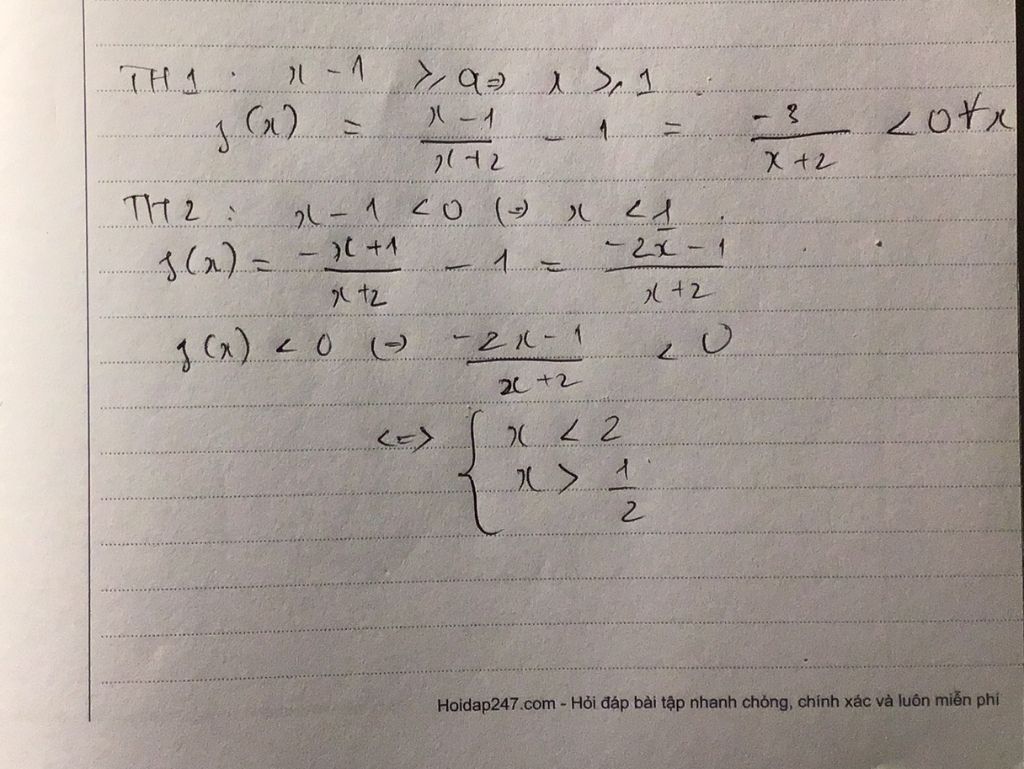 TH1 : x - 1 ≥ 0 => x ≥ 1 .
f(x) = \frac{x-1}{x+2} - 1 = \frac{-3}{x+2} < 0 ∀x
TH2 : x - 1 < 0 (=) x < 1 .
f(x) = \frac{-x+1}{x+2} - 1 = \frac{-2x-1}{x+2}
f(x) < 0 (=) \frac{-2x-1}{x+2} < 0
<=> { x < 2
x > \frac{1}{2}
Hoidap247.com - Hỏi đáp bài tập nhanh chóng, chính xác và luôn miễn phí